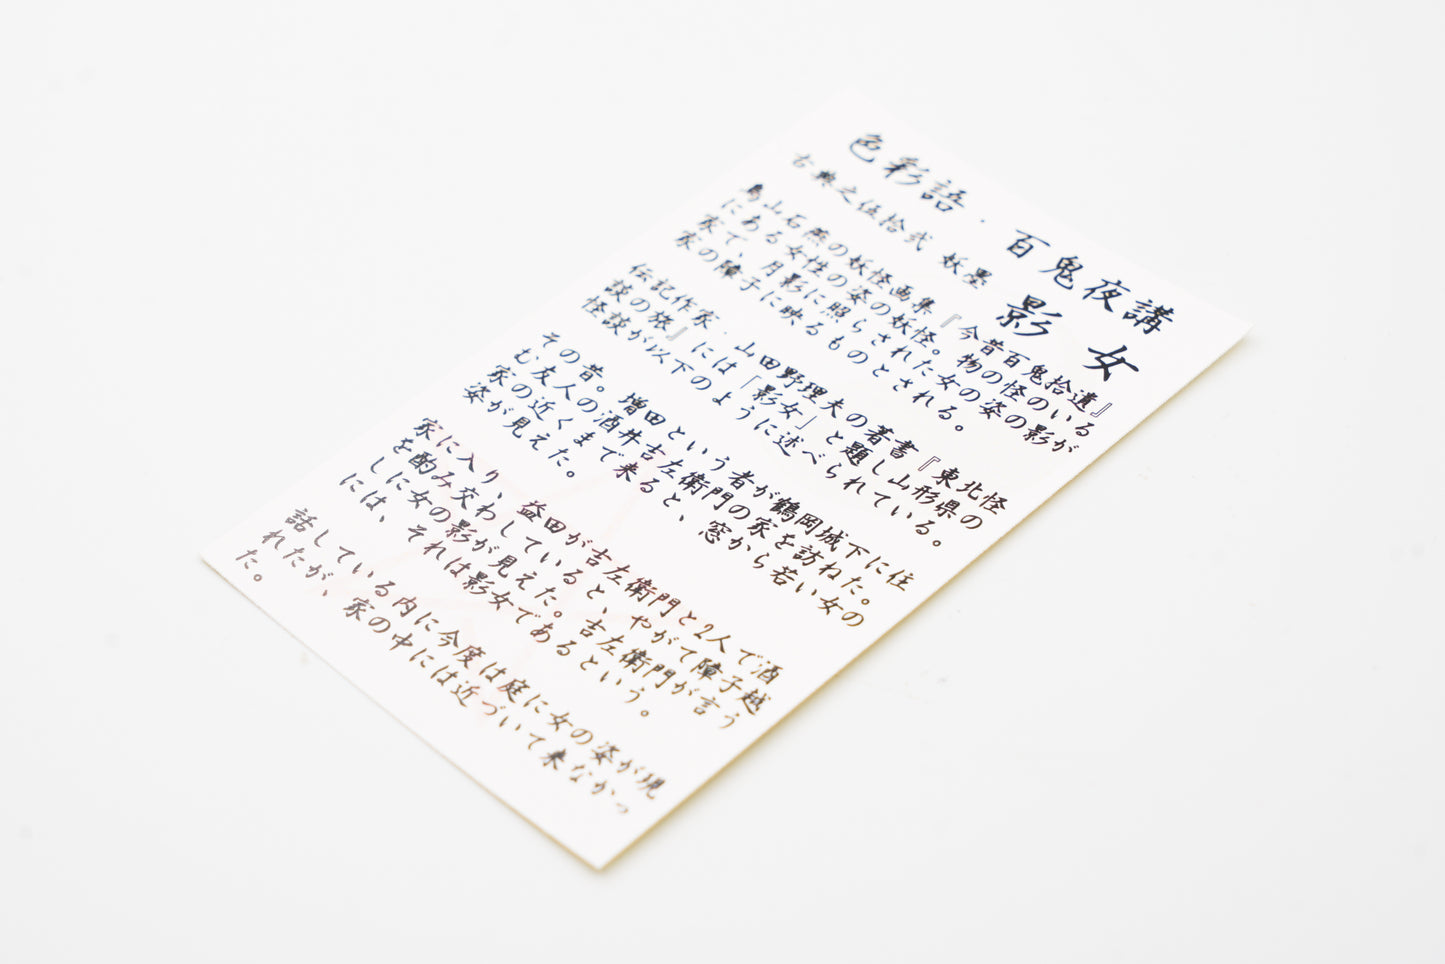 色彩語・百鬼夜講
古典之伍拾弐 妖墨
影女
鳥山石燕の妖怪画集『今昔百鬼拾遺』
にある女性の姿の妖怪。物の怪のいる
家で、月影に照らされた女の姿の影が
家の障子に映るものとされる。
伝記作家・山田野理夫の著書『東北怪
談の旅』には「影女」と題し山形県の
怪談が以下のように述べられている。
その昔。増田という者が鶴岡城下に住
む友人の酒井吉左衛門の家を訪ねた。
家の近くまで来ると、窓から若い女の
姿が見えた。
家に入り、益田が吉左衛門と2人で酒
を酌み交わしていると、やがて障子越
しに女の影が見えた。吉左衛門が言う
には、それは影女であるという。
話している内に今度は庭に女の姿が現
れたが、家の中には近づいて来なかっ
た。